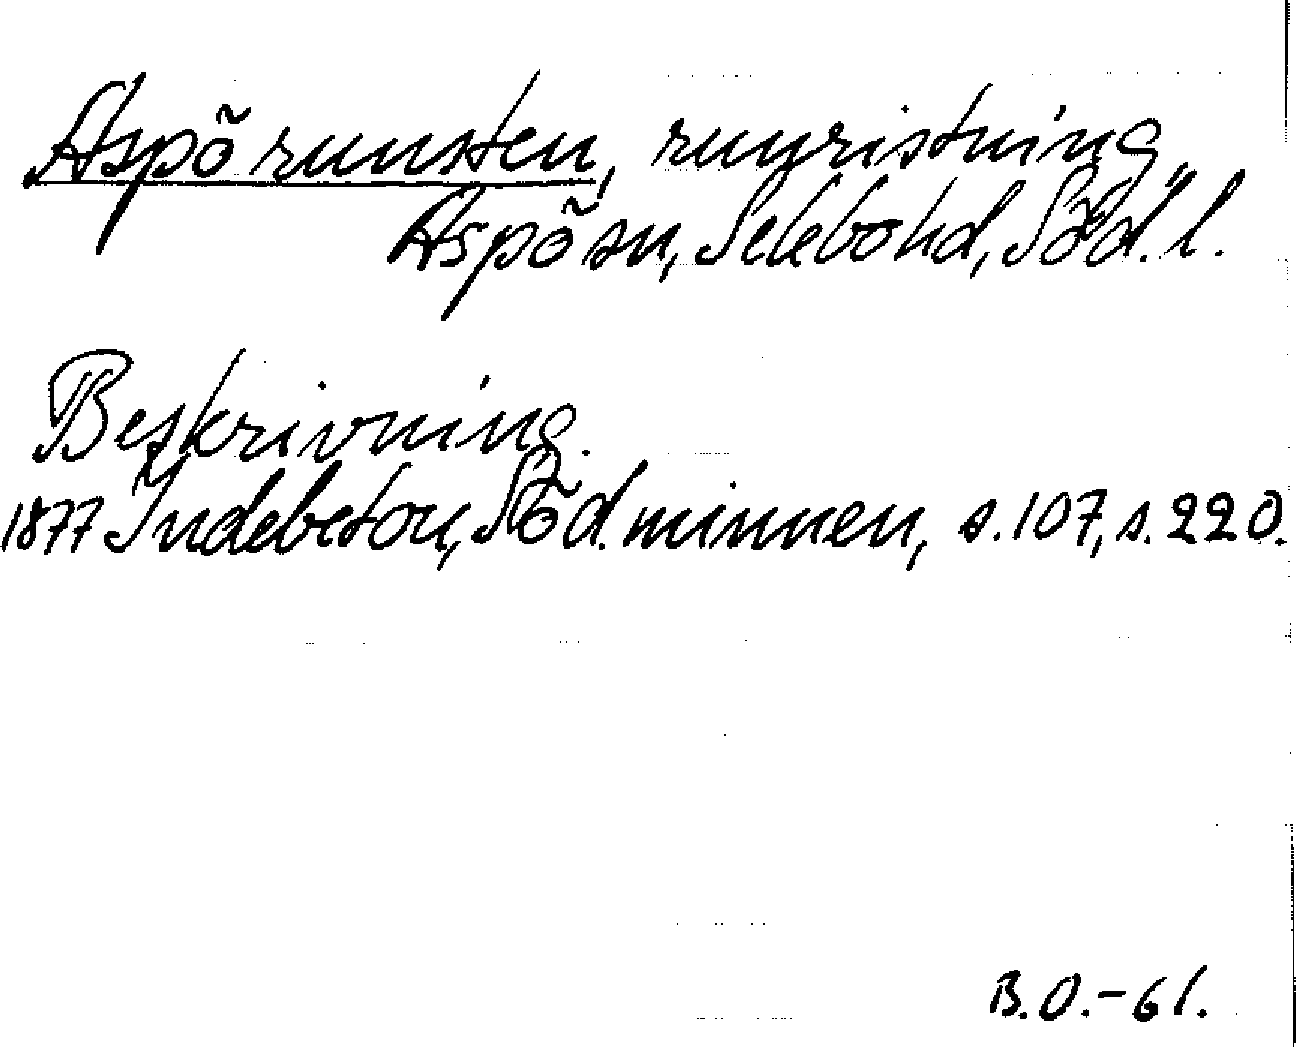 Aspö runsten, runristning,
Aspö sn, Selebo hd, Söd. l.
Beskrivning.
1877 Indebetou, Söd. minnen, s. 107, s. 220.
B.O.-61.